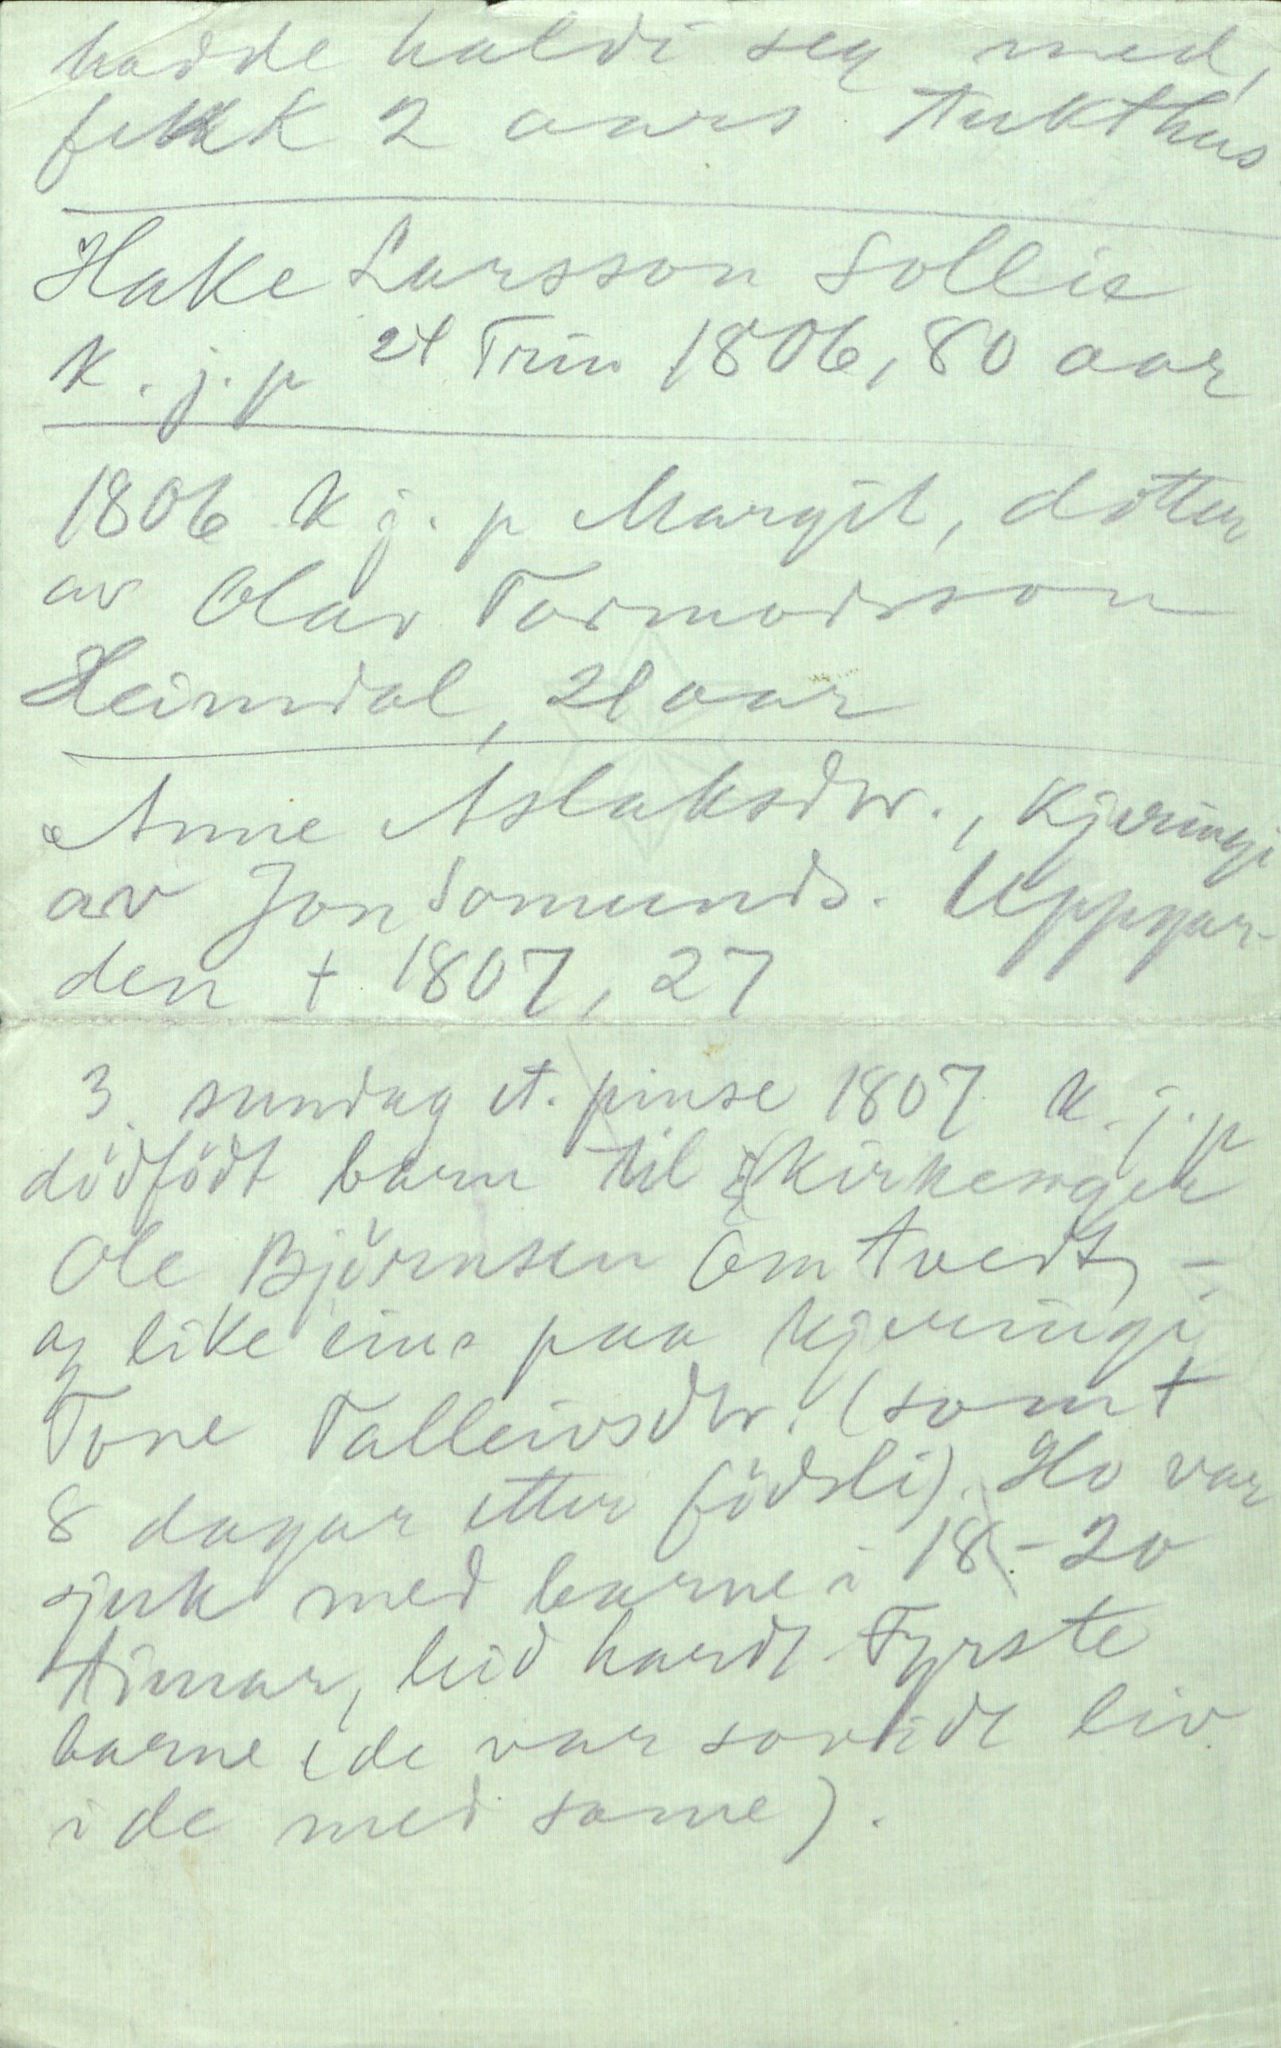 hadde haldi seg med,
fekk 2 aars tukthus
Hake Larsson Sollie
k. j. p 24 Trin 1806, 80 aar
1806 k j. p Margit, dotter
av Olav Tormodsson
Heimdal, 21 aar
Anne Aslaksdtr., kjeringi
av Jon Somunds. Uppgar-
den + 1807, 27
3. sundag et. pinse 1807 k. j. p
dödfödt barn til Kirkesoger
Ole Björnsen Omtvedt, -
og like eins paa kjeringi
Tone Talleivsdtr. (somt
8 dagar etter födsli). Ho var
sjuk med barne i 18-20
timar, leid hardt. Fyrste
barne (de var sovidt liv
i de med same).